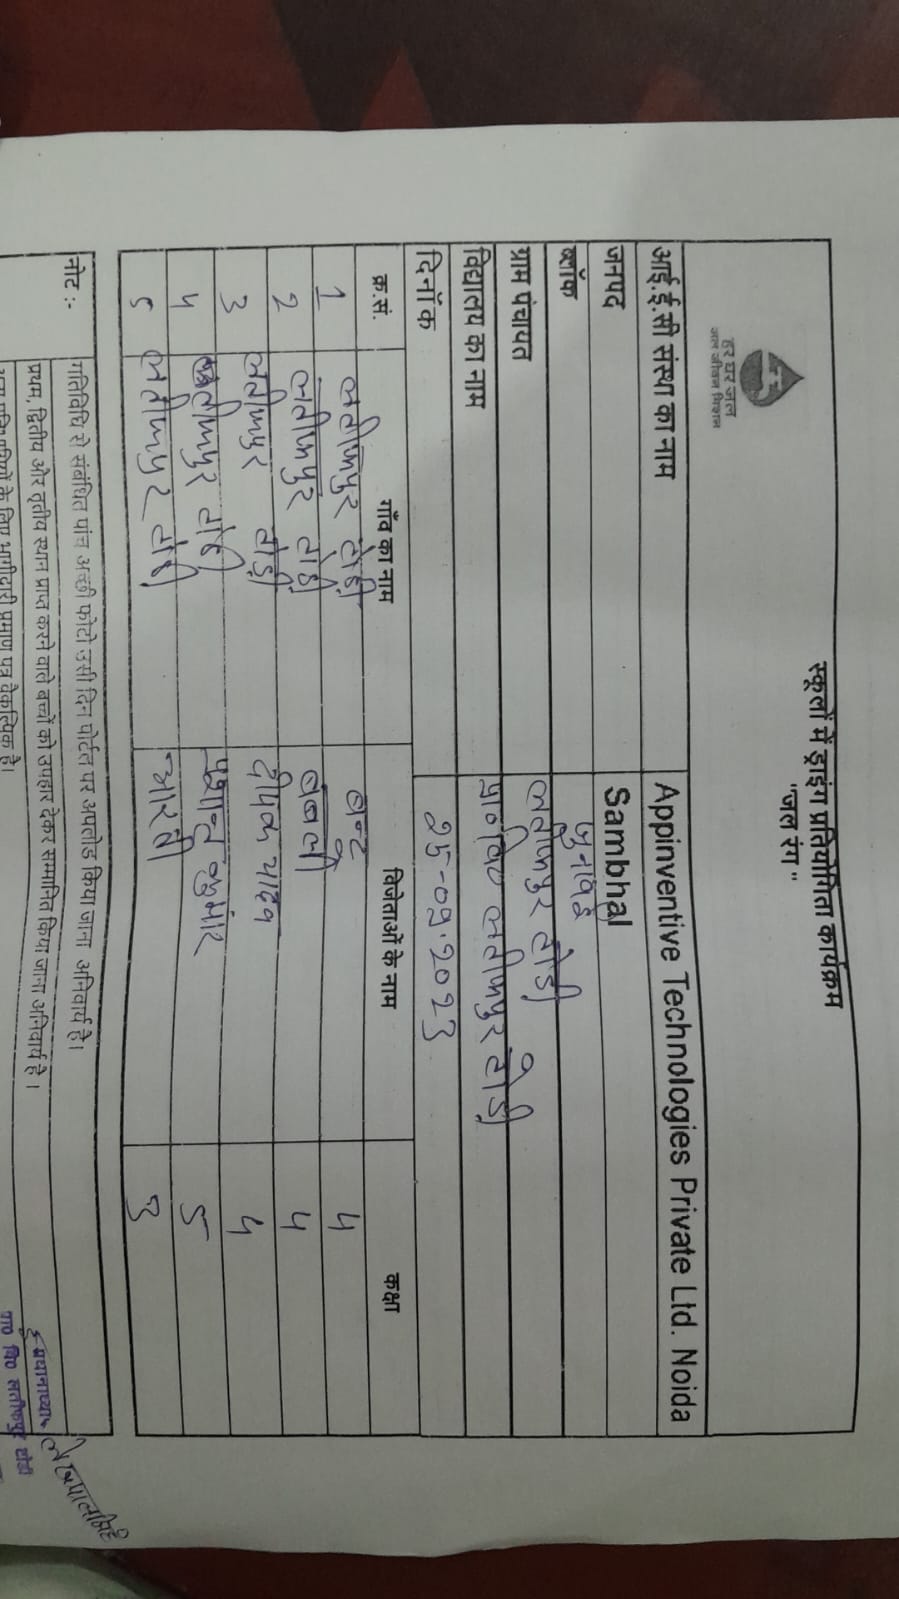 स्कूलों में ड्राइंग प्रतियोगिता कार्यक्रम
"जल रंग"
हर घर जल
जल जीवन मिशन
आई.ई.सी संस्था का नाम Appinventive Technologies Private Ltd. Noida
जनपद Sambhal
ब्लॉक जुनावई
ग्राम पंचायत लतीफपुर टोडी
विद्यालय का नाम प्रा० वि० लतीफपुर टोडी
दिनाँक 25-09-2023
क्र.सं. गाँव का नाम विजेताओं के नाम कक्षा
1 लतीफपुर टोडी 4
2 लतीफपुर टोडी 4
3 लतीफपुर टोडी दीपक यादव 4
4 लतीफपुर टोडी कुमार 5
5 लतीफपुर टोडी आरती 3
नोट :- गतिविधि से संबंधित पांच अच्छी फोटो उसी दिन पोर्टल पर अपलोड किया जाना अनिवार्य है।
प्रथम, द्वितीय और तृतीय स्थान प्राप्त करने वाले बच्चों को उपहार देकर सम्मानित किया जाना अनिवार्य है ।
के लिए भागीदारी प्रमाण पत्र वैकल्पिक है।
प्रा० वि० लतीफपुर टोडी